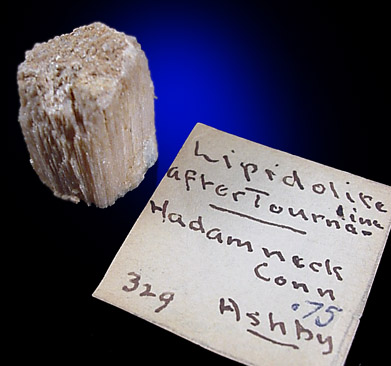 Lipidolite
after Tourma-
line
Hadamneck
Conn
.75
329 Ashby